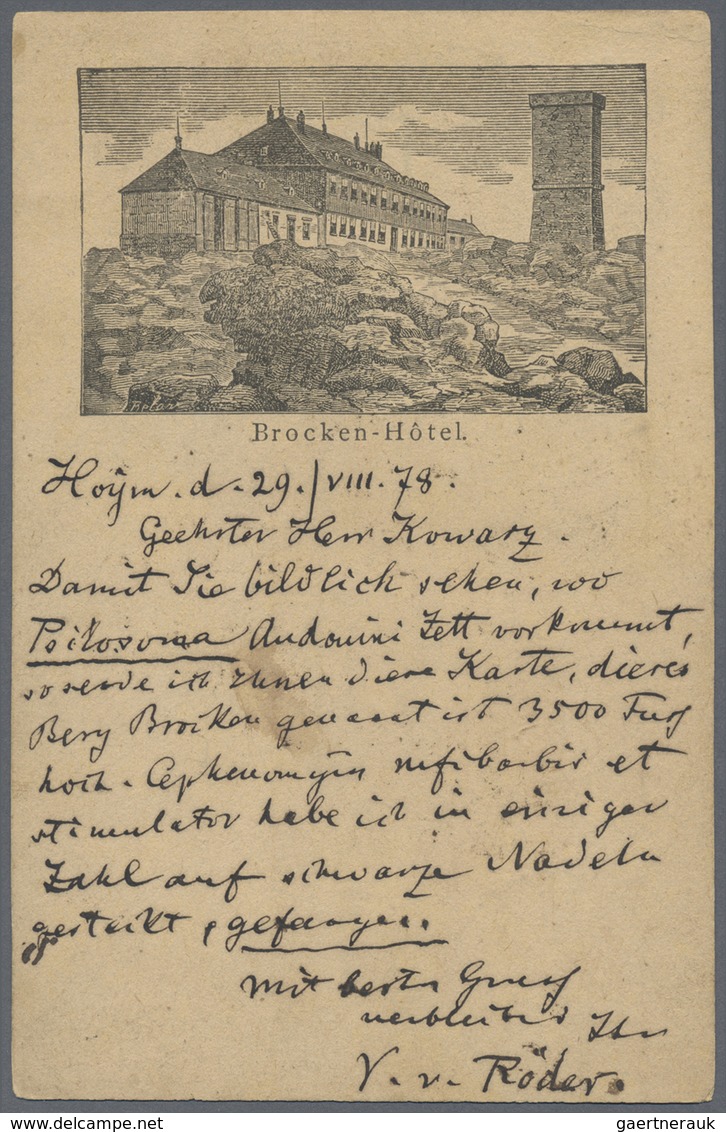 Brocken-Hôtel.
Hoÿm. d. 29./VIII. 78.
Geehrter Herr Kowarz.
Damit Sie bildlich sehen, wo
Psilosoma Audouini Zett vorkommt,
so sende ich Ihnen diese Karte, dieses
Berg Brocken genannt ist 3500 Fuss
hoch. et
stimulator habe ich in einiger
Zahl auf schwarze Nadeln
gesteckt, gefangen.
Mit besten Gruss
verbleibe Ihr
V. v. Röder.
delcampe.net
gaertnerauk